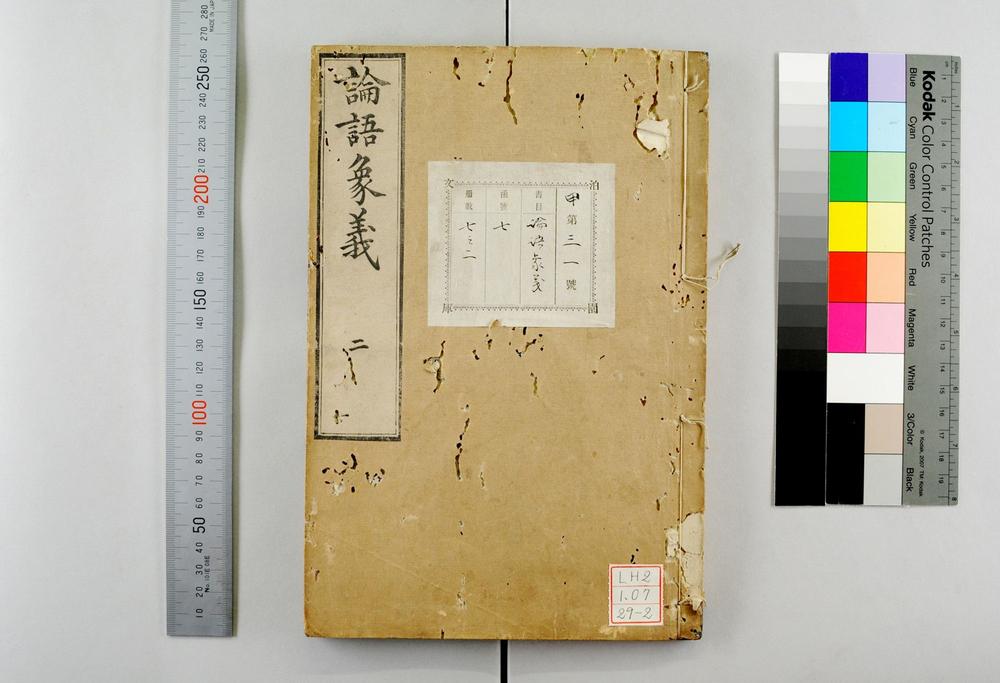 論語象義 二
泊園文庫
甲第三一號
書目 論語象義
函號 七
冊数 七ミ二
LH2
1.07
29-2
Kodak Color Control Patches
Blue
Cyan
Green
Yellow
Red
Magenta
White
3/Color
Black
© Kodak, 2007 TM: Kodak
280
270
260
250
240
230
220
210
200
190
180
170
160
150
140
130
120
110
100
90
80
70
60
50
40
30
20
10
MADE IN JAPAN